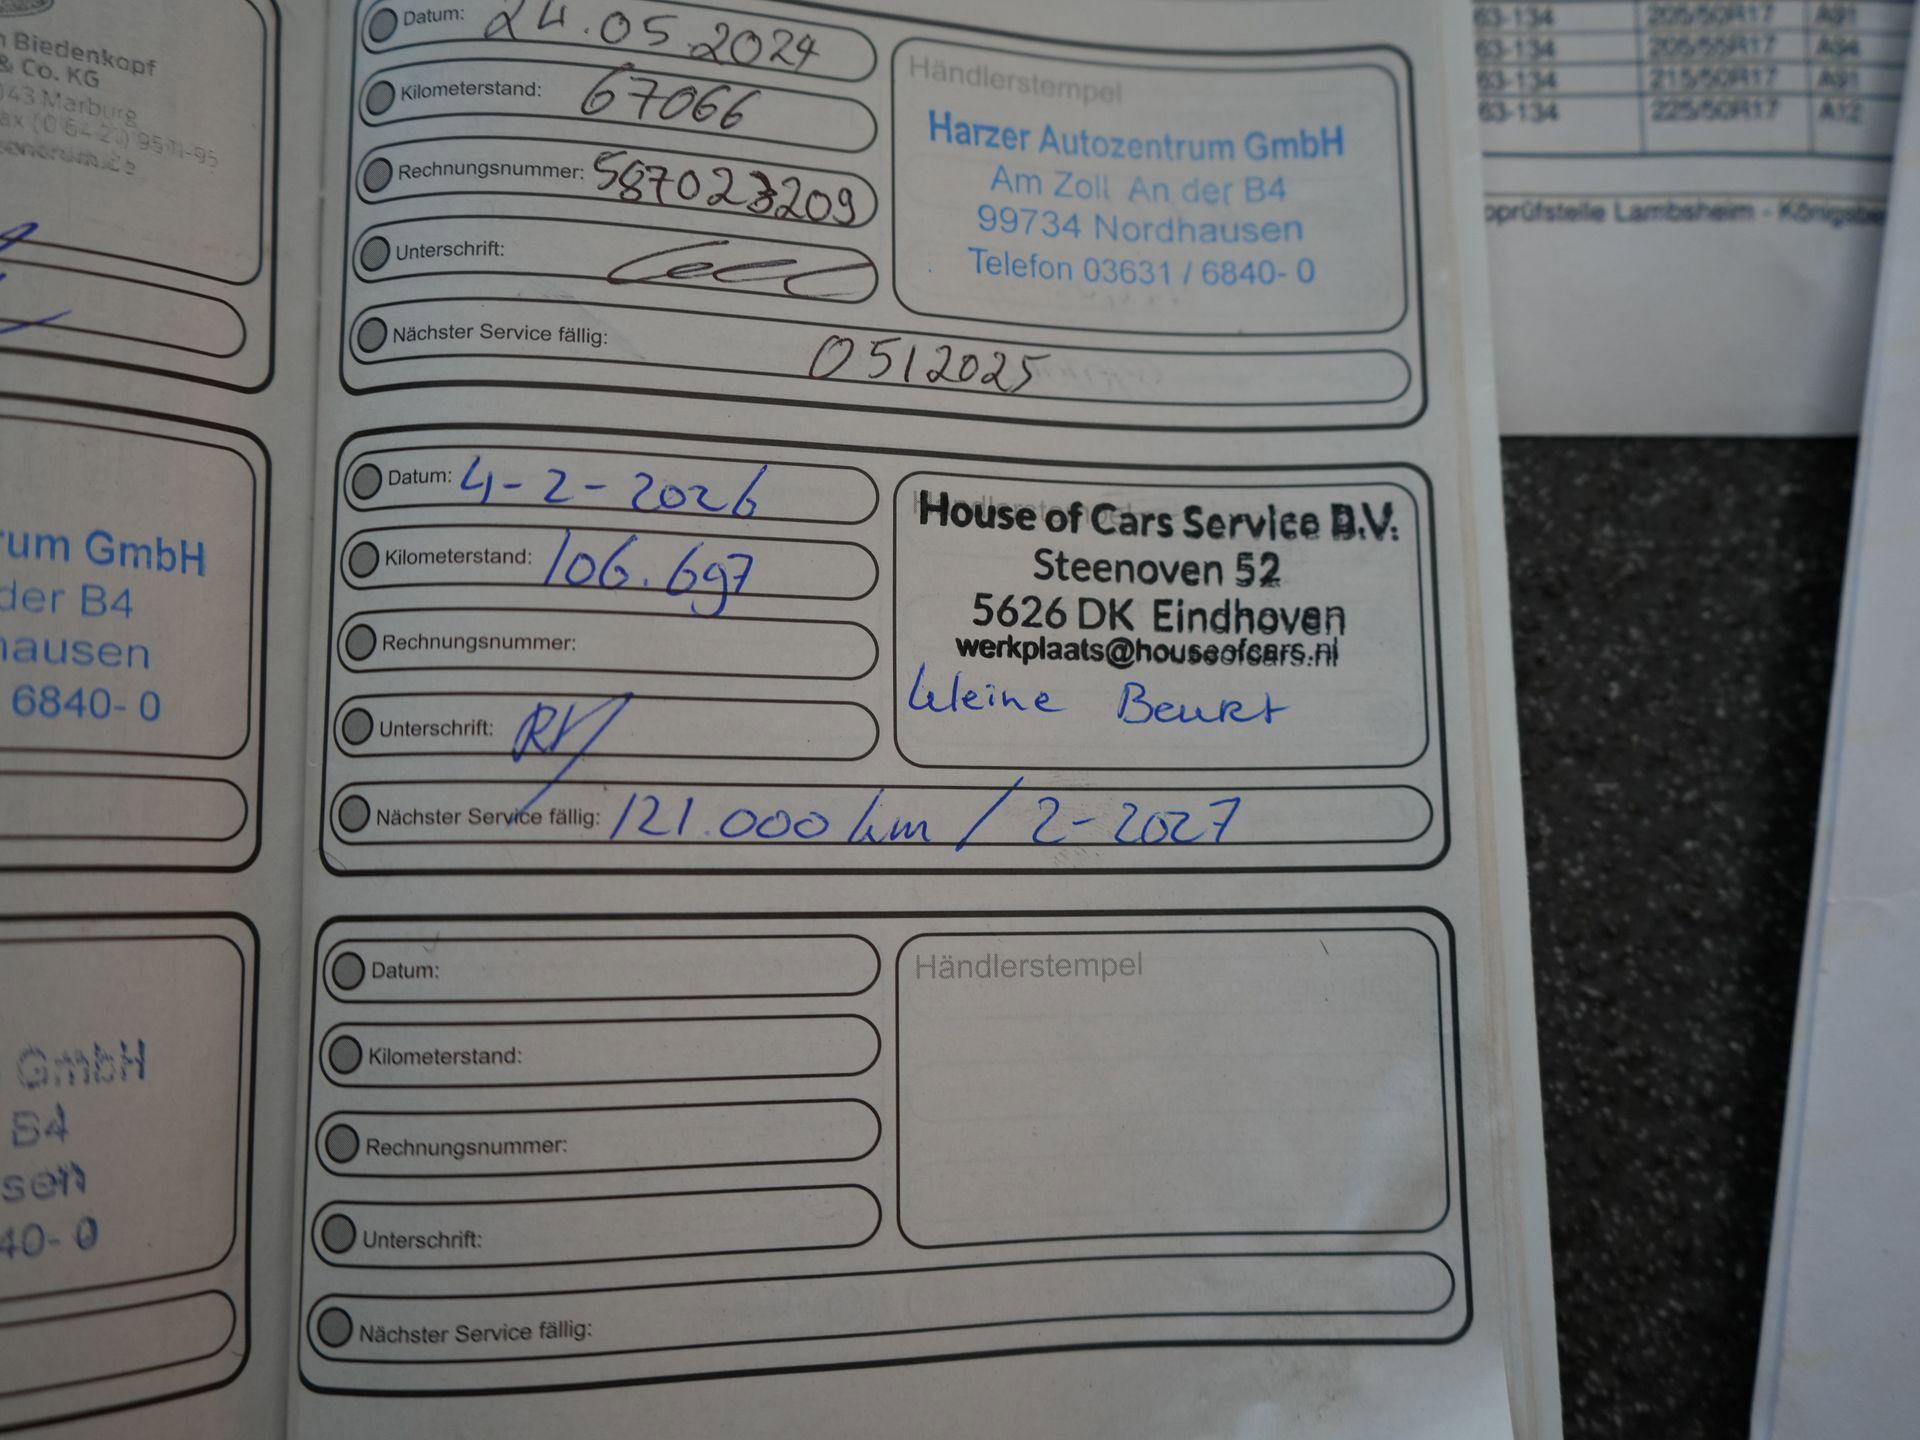 Biedenkopf
& Co. KG
043 Marburg
rum GmbH
der B4
hausen
6840- 0
GmbH
B4
sen
40- 0
Datum: 24.05.2024
Kilometerstand: 67066
Rechnungsnummer: 587023209
Unterschrift:
Nächster Service fällig: 05/2025
Händlerstempel
Harzer Autozentrum GmbH
Am Zoll An der B4
99734 Nordhausen
Telefon 03631 / 6840- 0
Datum: 4-2-2026
Kilometerstand: 106.697
Rechnungsnummer:
Unterschrift: RV
Nächster Service fällig: 121.000 km / 2-2027
Händlerstempel
House of Cars Service B.V.
Steenoven 52
5626 DK Eindhoven
werkplaats@houseofcars.nl
kleine Beurt
Datum:
Kilometerstand:
Rechnungsnummer:
Unterschrift:
Nächster Service fällig:
Händlerstempel
63-134 205/50R17 A91
63-134 205/55R17 A94
63-134 215/50R17 A91
63-134 225/50R17 A12
prüfstelle Lambsheim - Königsbe